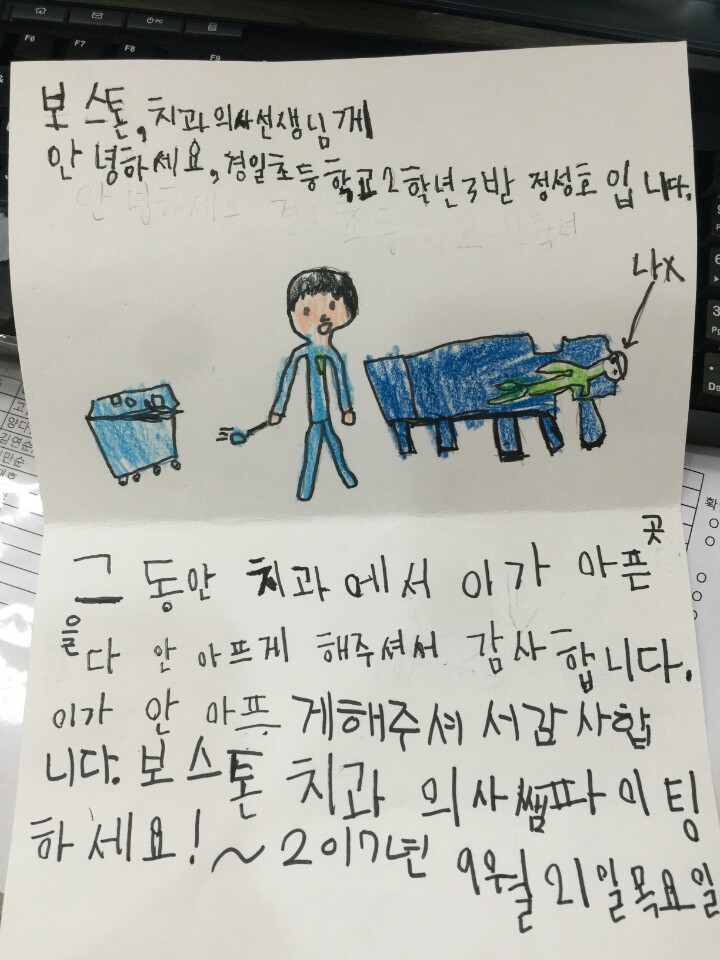 보스톤, 치과의사선생님께
안녕하세요, 경일초등학교2학년3반 정성호입니다.
나X
그동안 치과에서 이가 아픈곳
을 다 안 아프게 해주셔서 감사합니다.
이가 안 아프게해주셔서감사합
니다. 보스톤 치과 의사쌤파이팅
하세요!~2017년 9월21일목요일
F6
F7
F8
F9